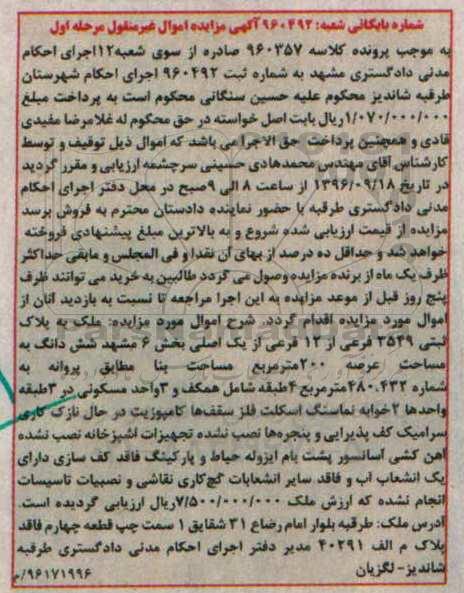 شماره بایگانی شعبه: ۹۶۰۴۹۲ آگهی مزایده اموال غیرمنقول مرحله اول
به موجب پرونده کلاسه ۹۶۰۳۵۷ صادره از سوی شعبه۱۲اجرای احکام
مدنی دادگستری مشهد به شماره ثبت ۹۶۰۴۹۲ اجرای احکام شهرستان
طرقبه شاندیز محکوم علیه حسین سنگانی محکوم است به پرداخت مبلغ
۱/۰۷۰/۰۰۰/۰۰۰ریال بابت اصل خواسته در حق محکوم له غلامرضا مفیدی
قادی و همچنین پرداخت حق الاجرا می باشد که اموال ذیل توقیف و توسط
کارشناس آقای مهندس محمدهادی حسینی سرچشمه ارزیابی و مقرر گردید
در تاریخ ۱۳۹۶/۰۹/۱۸ از ساعت ۸ الی ۹صبح در محل دفتر اجرای احکام
مدنی دادگستری طرقبه با حضور نماینده دادستان محترم به فروش برسد
مزایده از قیمت ارزیابی شده شروع و به بالاترین مبلغ پیشنهادی فروخته
خواهد شد و حداقل ده درصد از بهای آن نقدا و فی المجلس و مابقی حداکثر
ظرف یک ماه از برنده مزایده وصول می گردد طالبین به خرید می توانند ظرف
پنج روز قبل از موعد مزایده به این اجرا مراجعه تا نسبت به بازدید آنان از
اموال مورد مزایده اقدام گردد. شرح اموال مورد مزایده: ملک به پلاک
ثبتی ۳۵۴۹ فرعی از ۱۲ فرعی از یک اصلی بخش ۶ مشهد شش دانگ به
مساحت عرصه ۲۰۰مترمربع مساحت بنا مطابق پروانه به
شماره ۴۸۰.۴۳۲مترمربع ۴طبقه شامل همکف و ۳واحد مسکونی در ۳طبقه
واحدها ۲خوابه نماسنگ اسکلت فلز سقف‌ها کامپوزیت در حال نازک کاری
سرامیک کف پذیرایی و پنجره‌ها نصب نشده تجهیزات آشپزخانه نصب نشده
آهن کشی آسانسور پشت بام ایزوله حیاط و پارکینگ فاقد کف سازی دارای
یک انشعاب آب و فاقد سایر انشعابات گچ‌کاری نقاشی و نصبیات تاسیسات
انجام نشده که ارزش ملک ۷/۵۰۰/۰۰۰/۰۰۰ریال ارزیابی گردیده است.
آدرس ملک: طرقبه بلوار امام رضاع ۳۱ شقایق ۱ سمت چپ قطعه چهارم فاقد
پلاک م الف ۴۰۲۹۱ مدیر دفتر اجرای احکام مدنی دادگستری طرقبه
شاندیز- لگزیان
۹۶۱۷۱۹۹۶/م